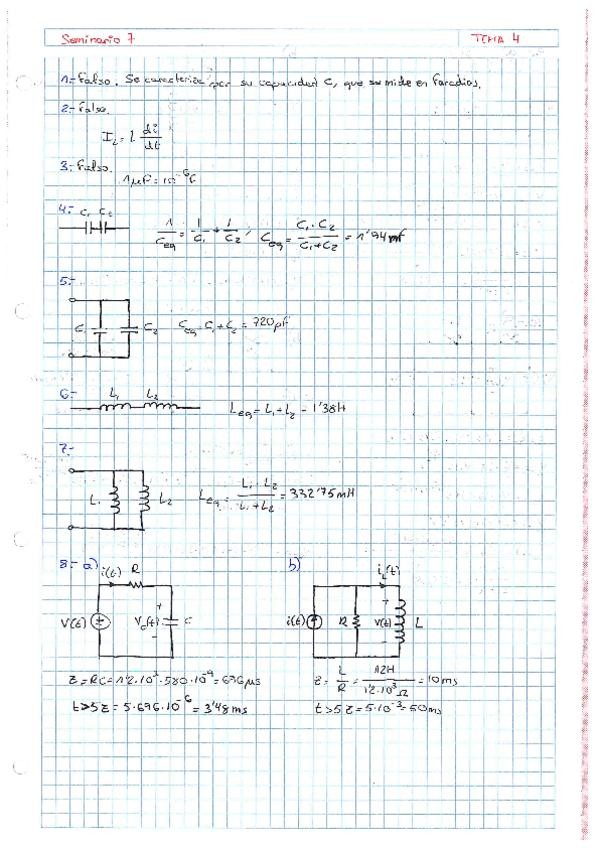 Seminario 7 TEMA 4
1.- Falso. Se caracteriza por su capacidad C, que se mide en Faradios.
2.- Falso.
I_L = L di/dt
3.- Falso.
1μF = 10^-6 F
4.- C₁ C₂ 1/Ceq = 1/C₁ + 1/C₂; Ceq = C₁·C₂/(C₁+C₂) = 1'94 mF
5.-
C₁ C₂ Ceq = C₁ + C₂ = 720 pF
6.- L₁ L₂
Leq = L₁ + L₂ = 1'38H
7.-
L₁ L₂ Leq = L₁·L₂/(L₁+L₂) = 332'75mH
8.- a) i(t) R b) i_L(t)
V(t) + Vc(t) - C i(t) R + V(t) - L
τ = RC = 12·10³·580·10^-9 = 696μs τ = L/R = 12H/12·10³Ω = 10ms
t>5τ = 5·696·10^-6 = 3'48ms t>5τ = 5·10^-3 = 50ms